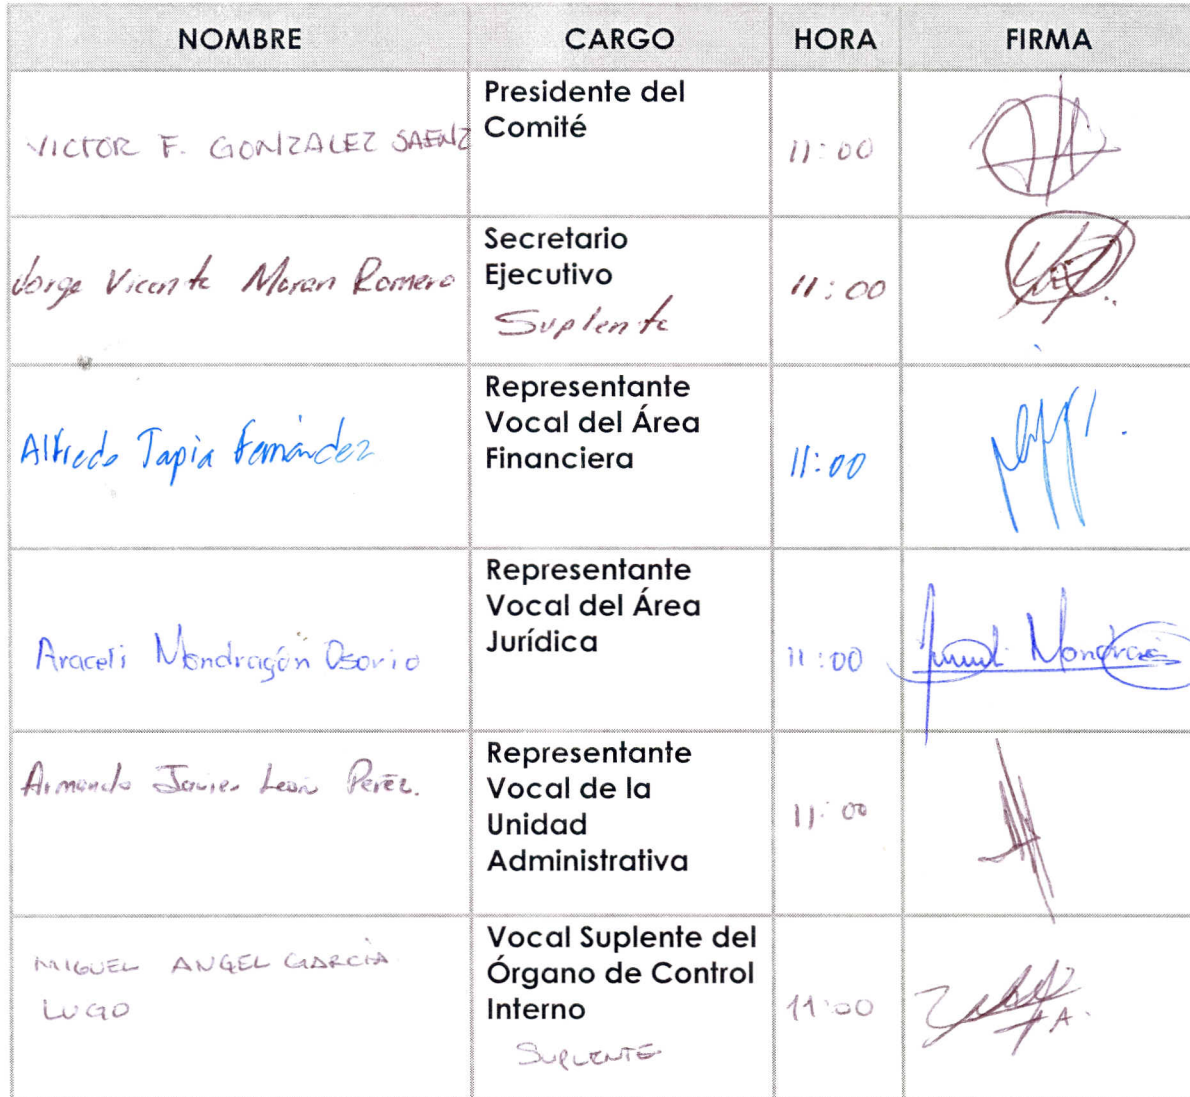 NOMBRE CARGO HORA FIRMA
VICTOR F. GONZALEZ SAENZ
Presidente del
Comité
11:00
Jorge Vicente Moran Romero
Secretario
Ejecutivo
Suplente
11:00
Alfredo Tapia Fernández
Representante
Vocal del Área
Financiera
11:00
Araceli Mondragón Osorio
Representante
Vocal del Área
Jurídica
11:00
Armando Javier León Peréz.
Representante
Vocal de la
Unidad
Administrativa
11:00
MIGUEL ANGEL GARCÍA
LUGO
Vocal Suplente del
Órgano de Control
Interno
SUPLENTE
11:00